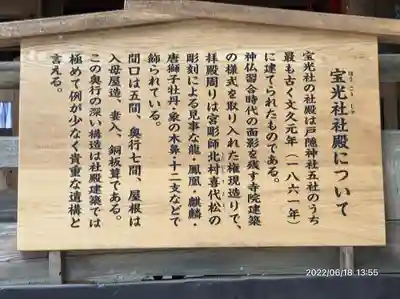 宝光社社殿について
ほうこうしゃ
宝光社の社殿は戸隠神社五社のうち
最も古く文久元年（一八六一年）
に建てられたものである。
神仏習合時代の面影を残す寺院建築
の様式を取り入れた権現造りで、
拝殿周りは宮彫師北村喜代松の
彫刻による見事な龍・鳳凰・麒麟・
唐獅子牡丹・象の木鼻・十二支などで
飾られている。
間口は五間、奥行七間、屋根は
入母屋造、妻入、銅板葺である。
この奥行の深い構造は社殿建築では
極めて例が少なく貴重な遺構と
言える。
2022/06/18 13:55